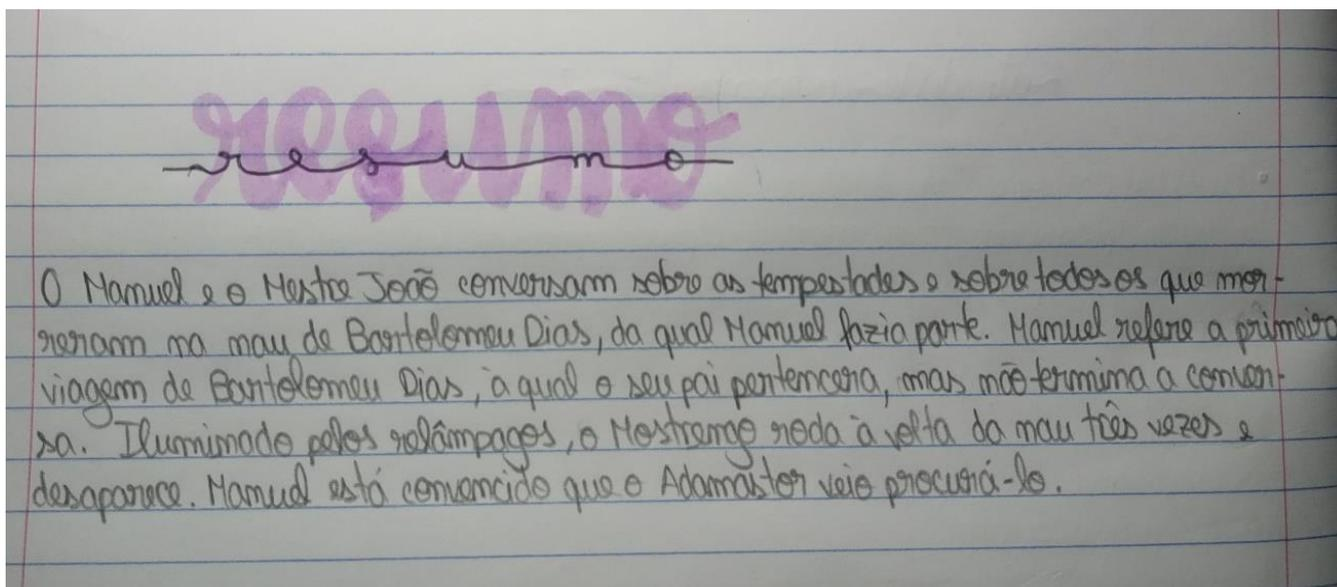 resumo
O Manuel e o Mestre João conversam sobre as tempestades e sobre todos os que mor-
reram na nau de Bartolomeu Dias, da qual Manuel fazia parte. Manuel refere a primeira
viagem de Bartolomeu Dias, à qual o seu pai pertencera, mas não termina a conver-
sa. Iluminado pelos relâmpagos, o Mostrengo roda à volta da nau três vezes e
desaparece. Manuel está convencido que o Adamastor veio procurá-lo.